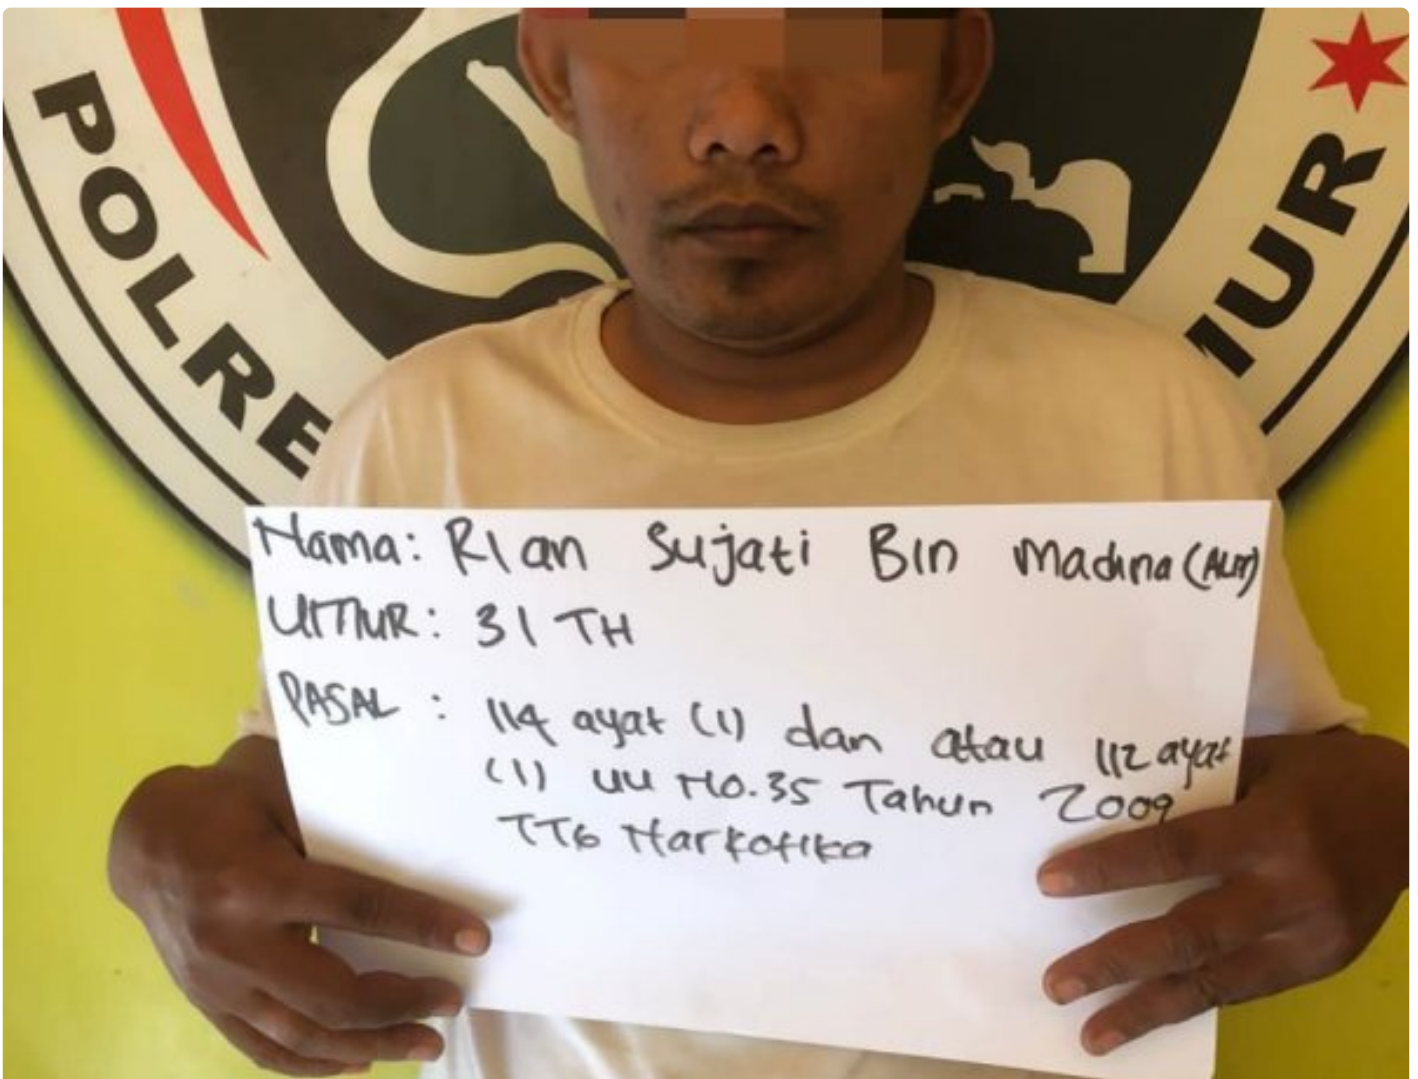 POLRE
IUR
Nama: Rian Sujati Bin Madina (ALM)
UMUR: 31 TH
PASAL : 114 ayat (1) dan atau 112 ayat
(1) UU No.35 Tahun 2009
TTG Narkotika